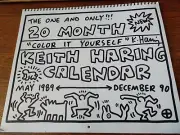 THE ONE AND ONLY!!!
20 MONTH
"COLOR IT YOURSELF" K. Haring
KEITH HARING
CALENDAR
MAY 1989 DECEMBER 90